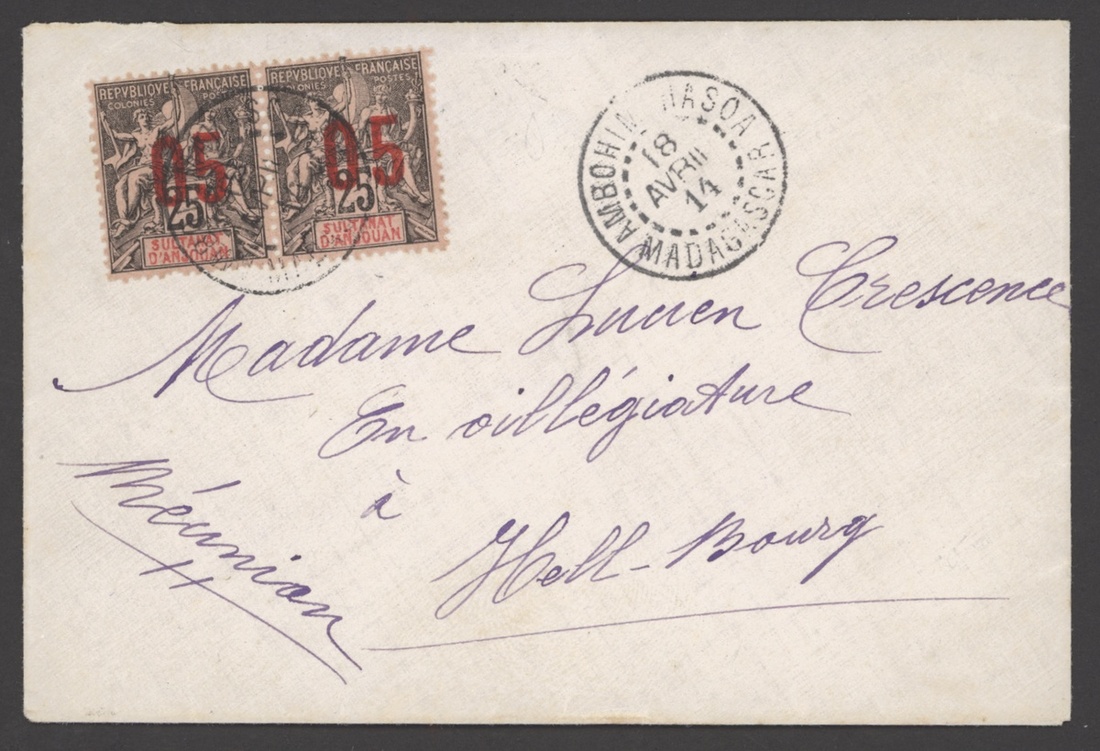 REPVBLIQUE FRANÇAISE
COLONIES POSTES
05
25
SULTANAT
D'ANJOUAN
REPVBLIQUE FRANÇAISE
COLONIES POSTES
05
25
SULTANAT
D'ANJOUAN
MADAGASCAR
18
AVRIL
14
Madame Lucien Crescence
En villégiature
à
Hell-Bourg
Réunion